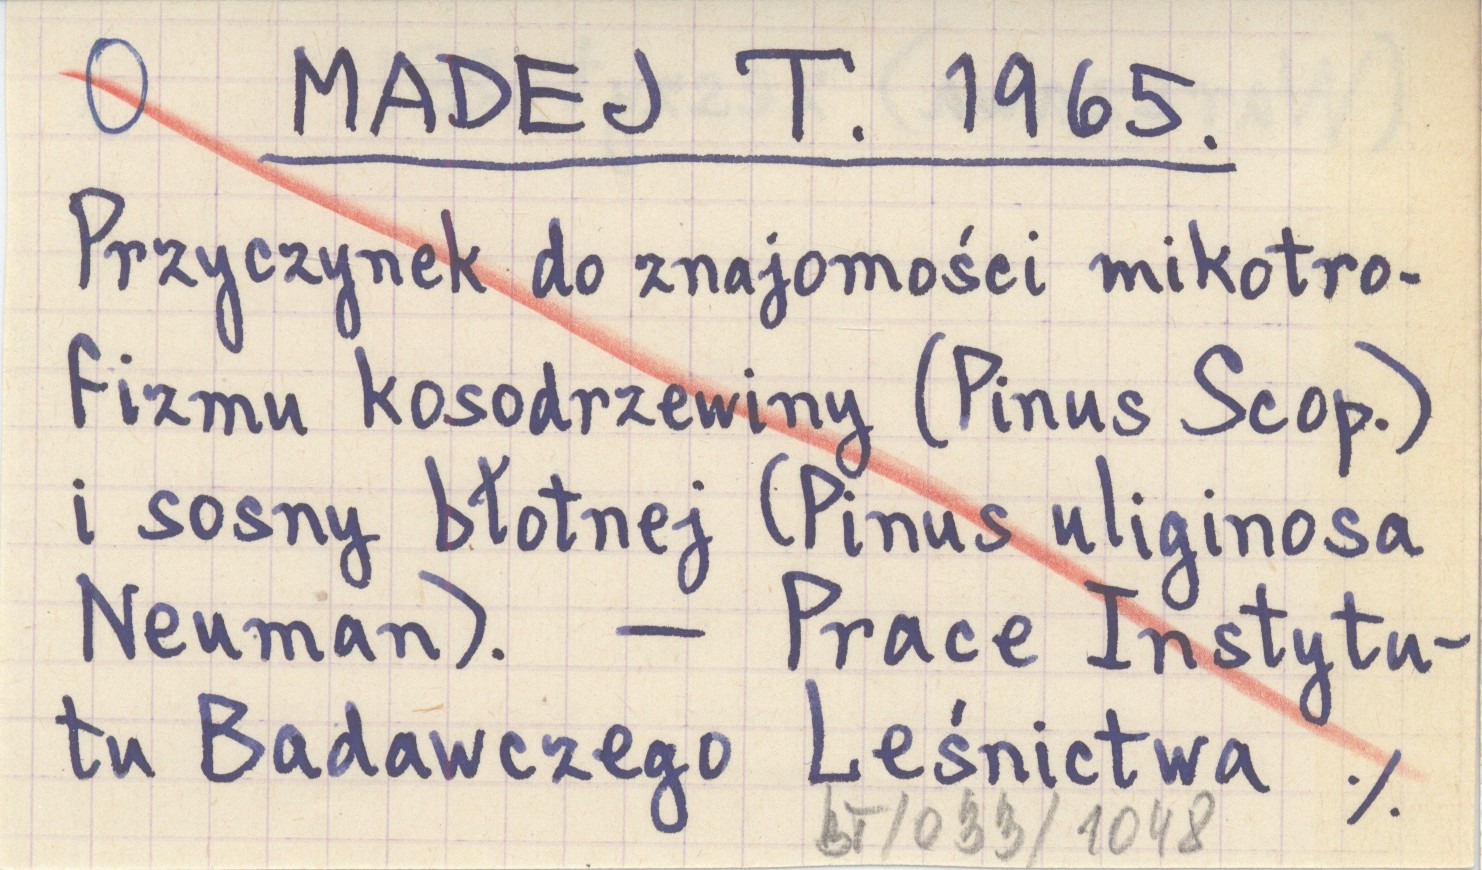 O MADEJ T. 1965.
Przyczynek do znajomości mikotro-
fizmu kosodrzewiny (Pinus Scop.)
i sosny błotnej (Pinus uliginosa
Neuman). — Prace Instytu-
tu Badawczego Leśnictwa ./.
/033/1048